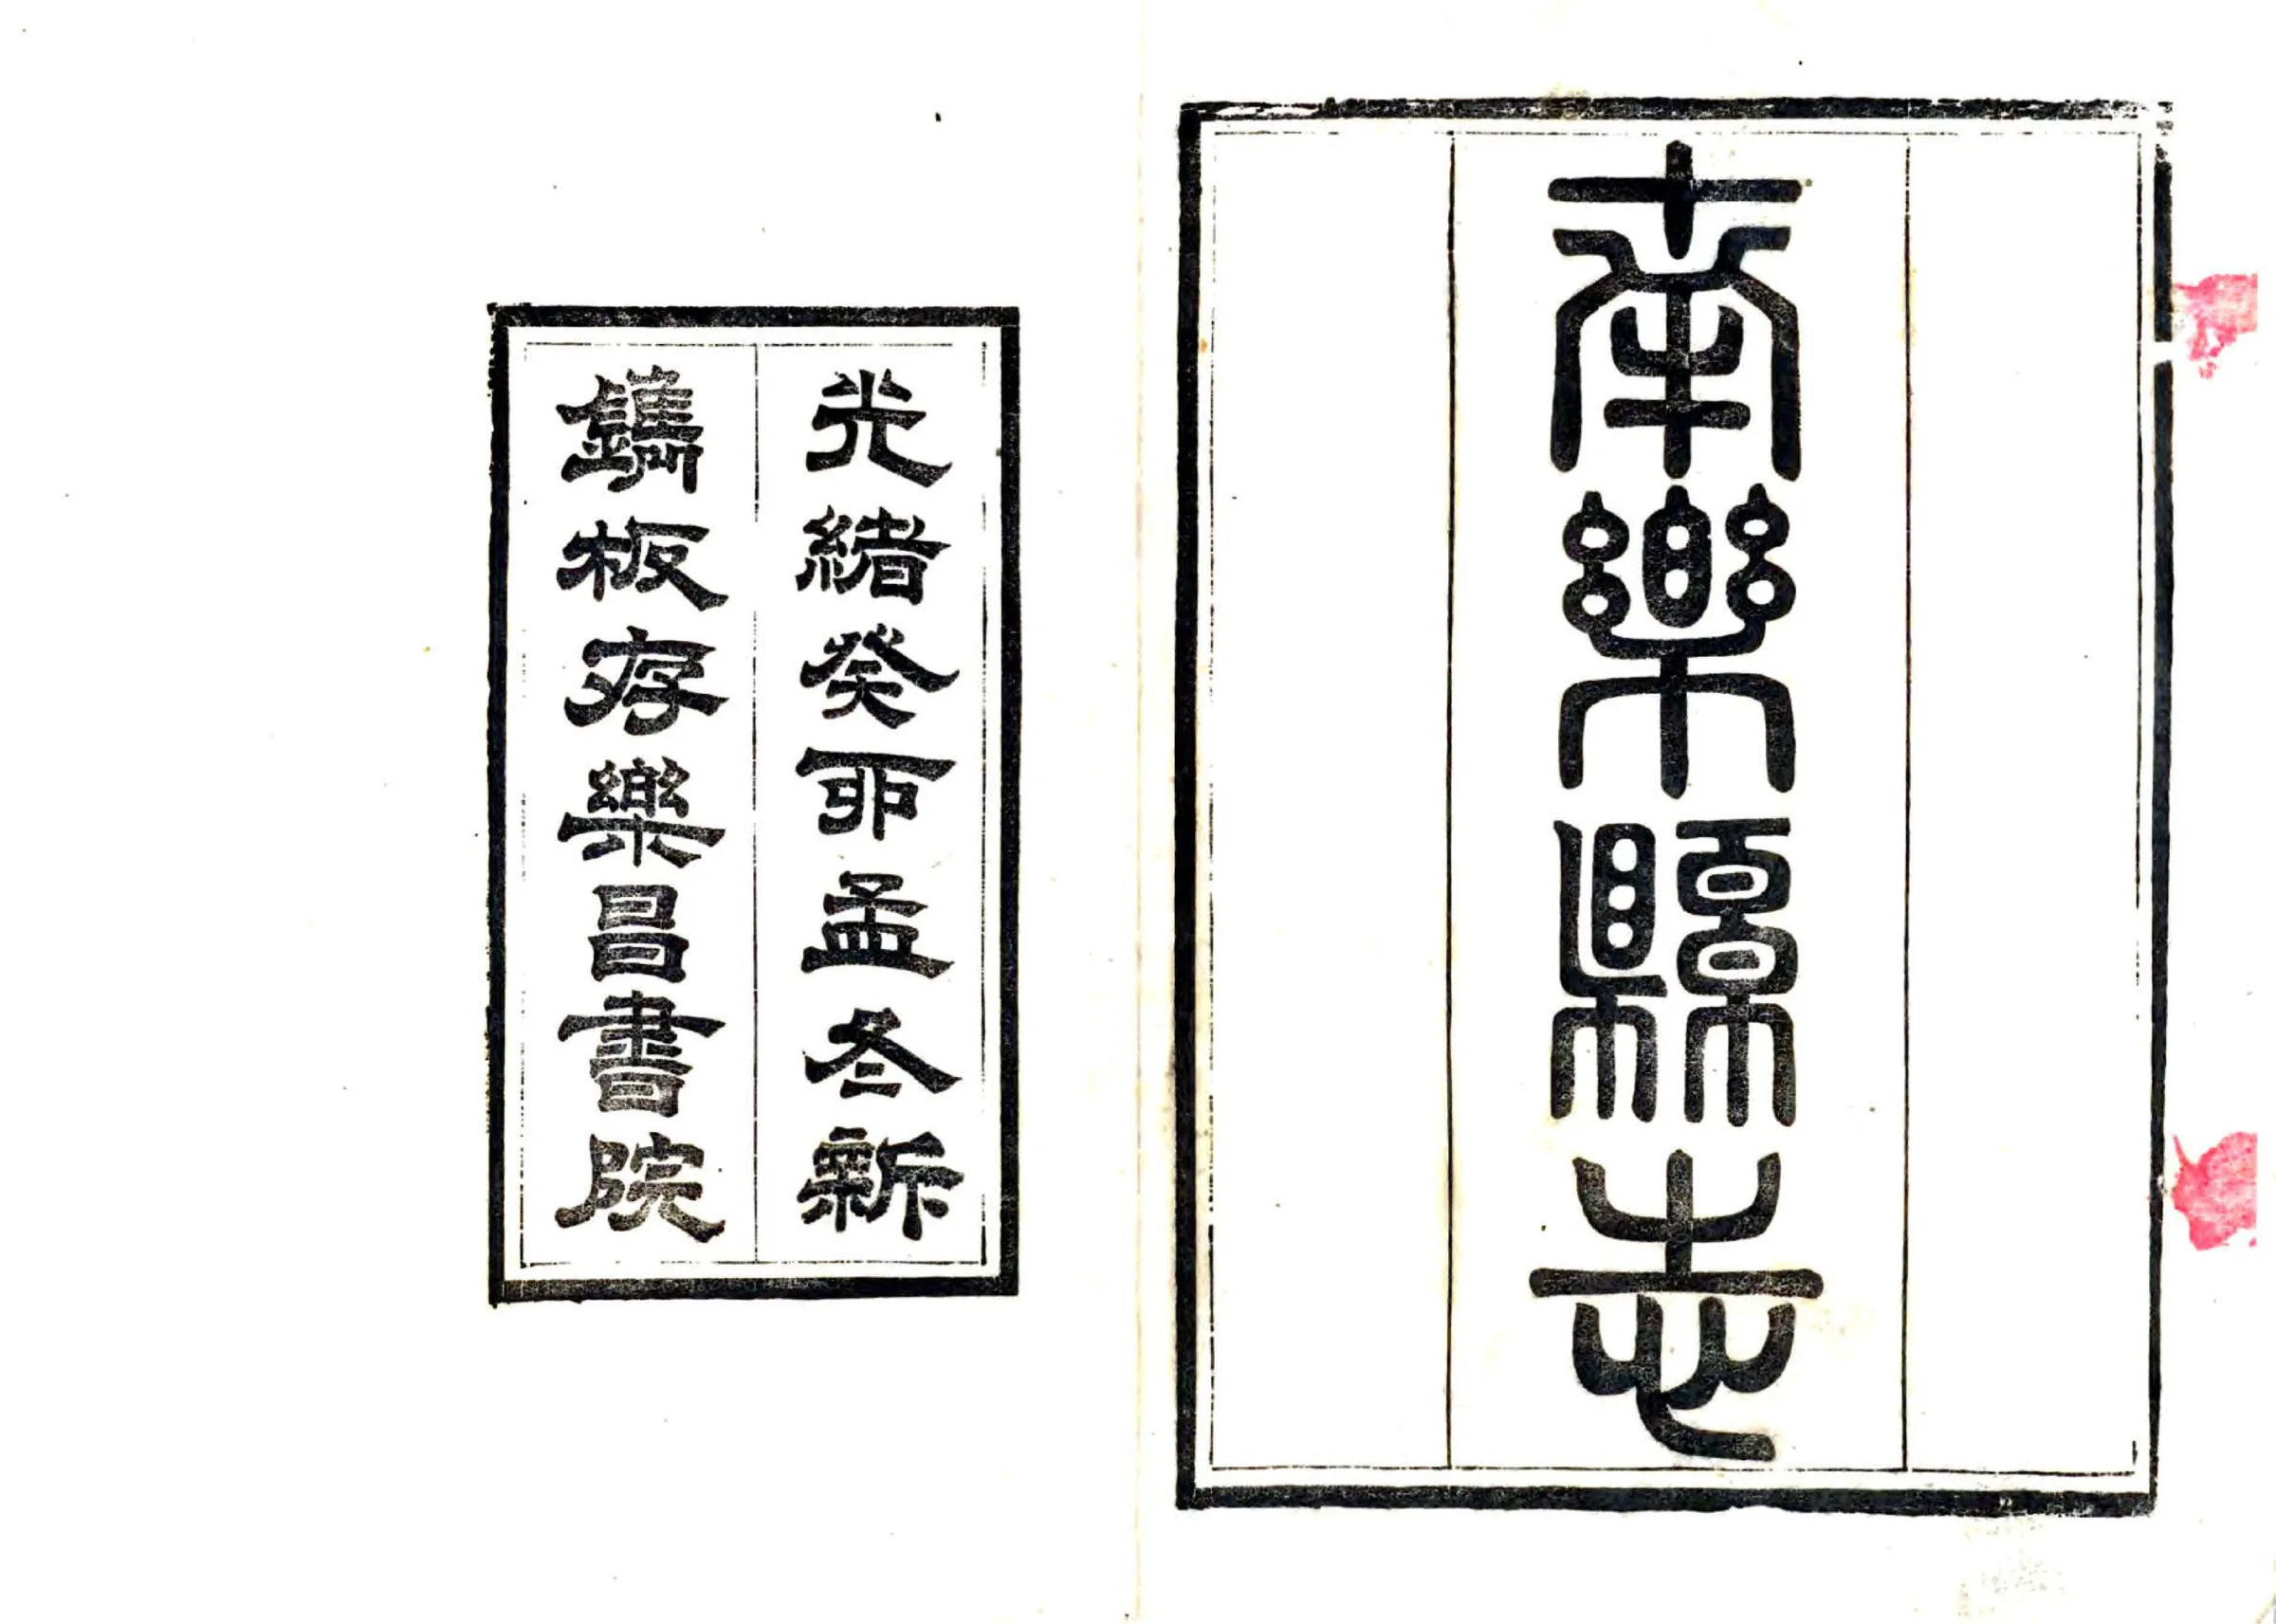 南樂縣志
光緒癸卯孟冬新
鐫板存樂昌書院